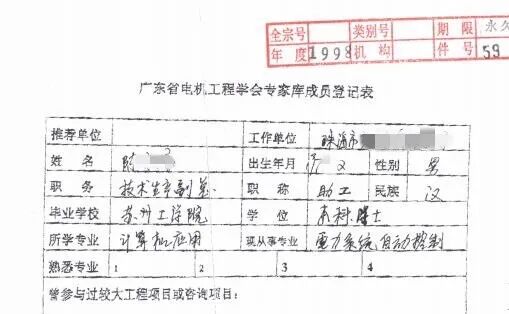 全宗号 类别号 期限 永久
年度 1998 机构 件号 59
广东省电机工程学会专家库成员登记表
推荐单位 工作单位 珠海市
姓名 陈 出生年月 性别 男
职务 技术 副总 职称 助工 民族 汉
毕业学校 苏州工学院 学位 本科
所学专业 计算机应用 现从事专业 电力系统自动控制
熟悉专业 1 2 3 4
曾参与过较大工程项目或咨询项目: